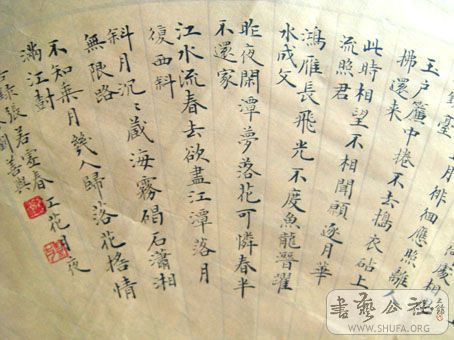 月徘徊應照離人
鏡臺
玉戶簾中捲不去擣衣砧上
拂還來
此時相望不相聞願逐月華
流照君
鴻雁長飛光不度魚龍潛躍
水成文
昨夜閑潭夢落花可憐春半
不還家
江水流春去欲盡江潭落月
復西斜
斜月沉〻藏海霧碣石瀟湘
無限路
不知乘月幾人歸落花搖情
滿江樹
錄張若虛春江花月夜
劉善
書藝公社
WWW.SHUFA.ORG